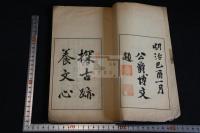 明治己酉一月
公爵博文
題
探古跡
養文心